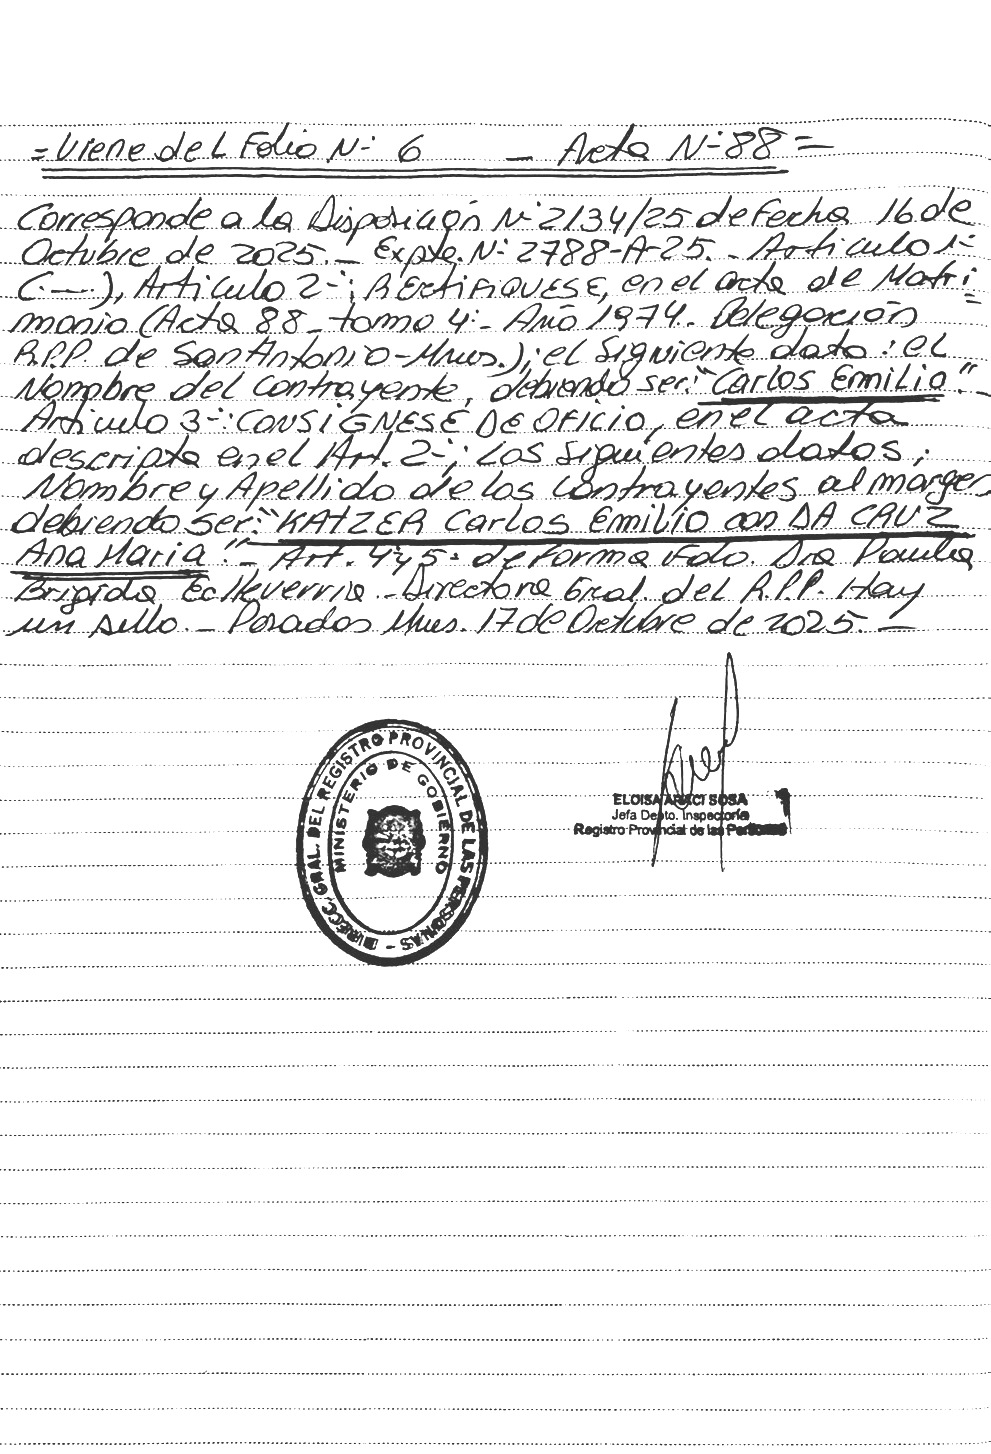 = Viene del Folio Nº 6 — Acta Nº 88 =
Corresponde a la Disposición Nº 2134/25 de Fecha 16 de
Octubre de 2025.— Expte. Nº 2788-A-25.- Artículo 1º
(.—.), Artículo 2º: RECTIFIQUESE, en el acta de Matri
monio (Acta 88 - tomo 4º - Año 1974. Delegación
R.P.P. de San Antonio-Mnes.); el siguiente dato: el
Nombre del contrayente, debiendo ser: "Carlos Emilio".-
Artículo 3º: CONSIGNESE DE OFICIO, en el acta
descripta en el Art. 2º; Los siguientes datos;
Nombre y Apellido de los contrayentes al margen
debiendo ser: "KATZER Carlos Emilio con DA CRUZ
Ana Maria".- Art. 4º y 5º de forma Fdo. Dra Paula
Brigida Echeverria - Directora Gral. del R.P.P. Hay
un sello.— Posadas Mnes. 17 de Octubre de 2025.—
DIRECC. GRAL. DEL REGISTRO PROVINCIAL DE LAS PERSONAS -
MINISTERIO DE GOBIERNO
ELOISA ARACI SOSA
Jefa Depto. Inspectoría
Registro Provincial de las Personas